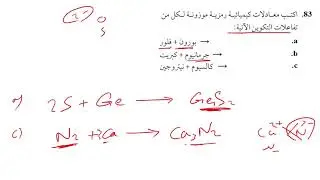 2- O
S
83. اكتب معادلات كيميائية رمزية موزونة لكل من
تفاعلات التكوين الآتية:
a. بورون + فلور →
b. جرمانيوم + كبريت →
c. كالسيوم + نيتروجين →
2S + Ge → GeS₂
c) N₂ + 3Ca → Ca₃N₂
Ca²⁺ N³⁻
N₂